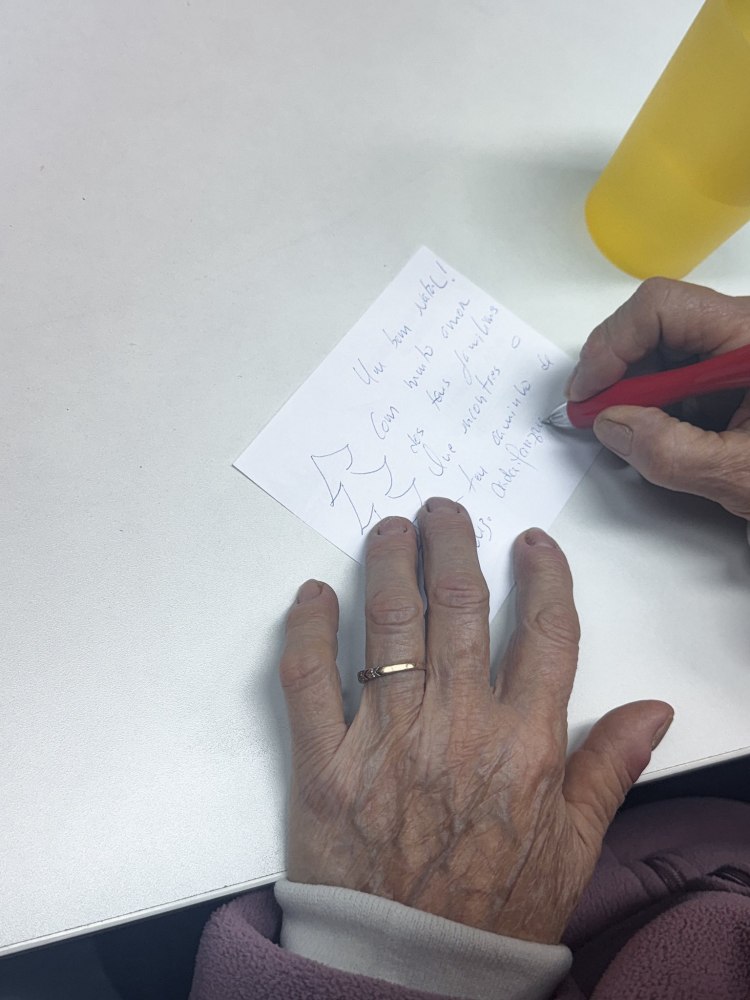 Um bom natal!
Com muito amor
dos teus familiares
Que encontres o
teu caminho de